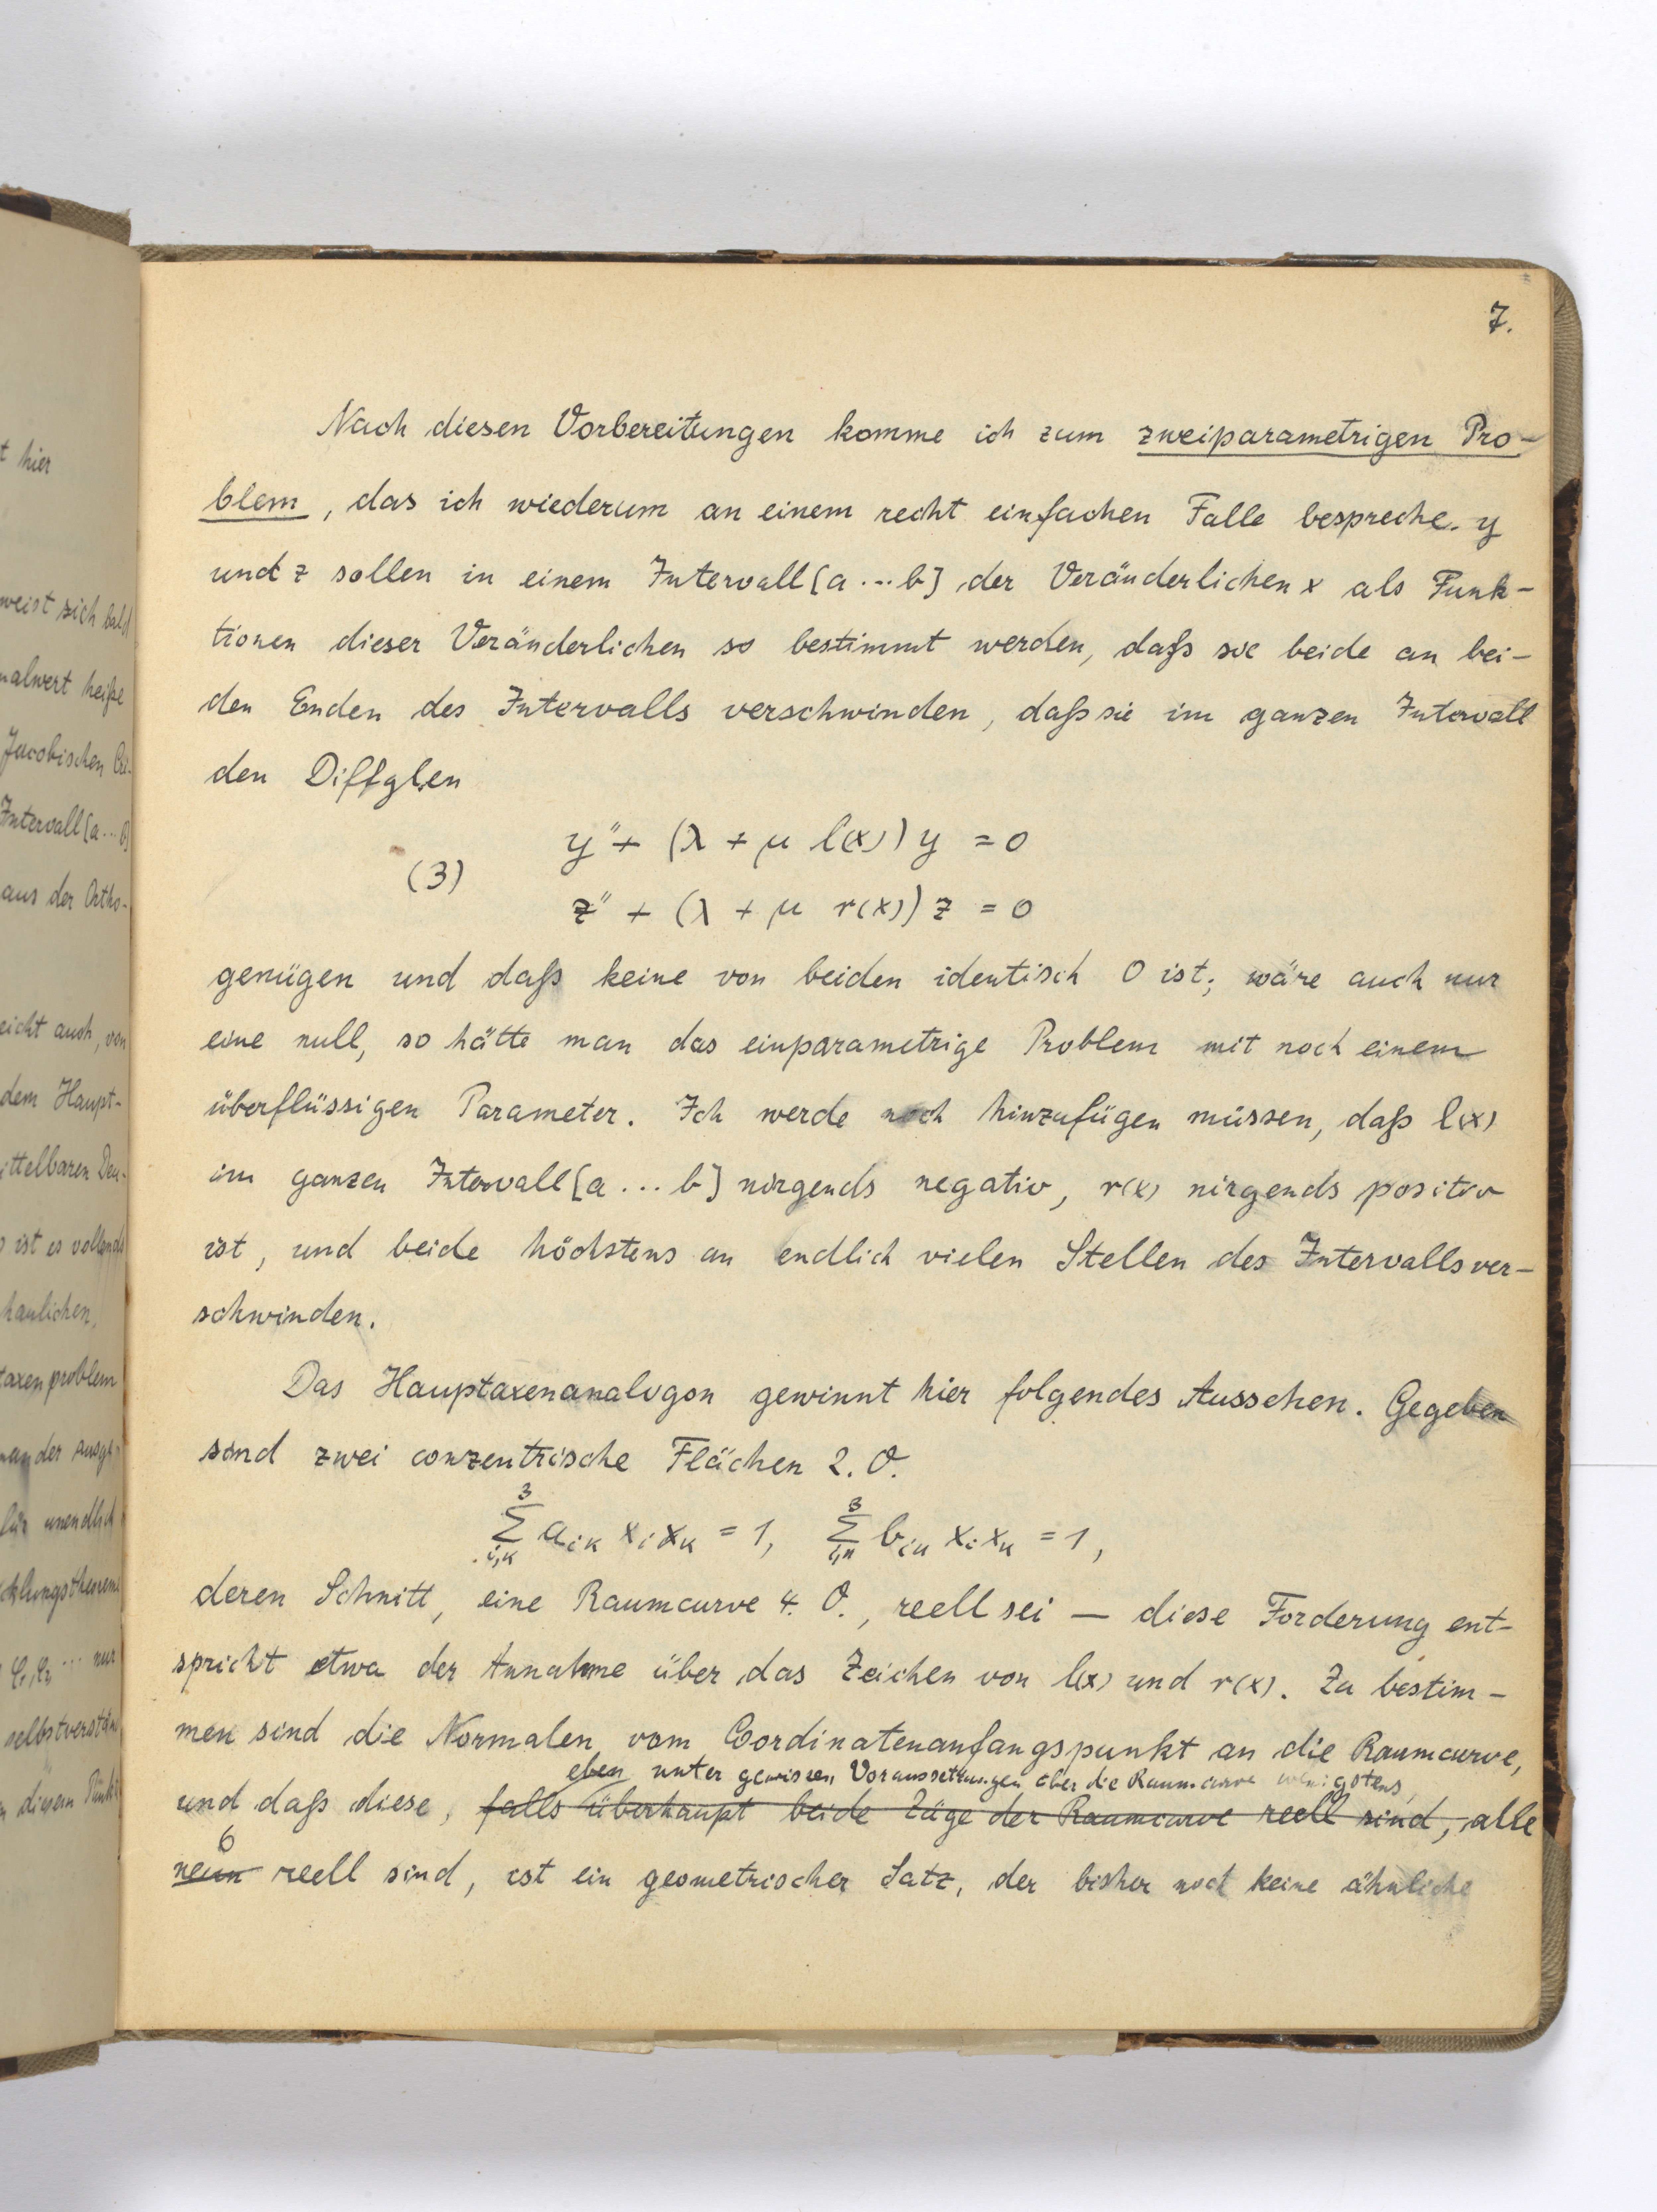 t hier
weist sich bald
malwert heiße
Jacobischen
Intervall [a ... b]
aus der Ortho-
eicht auch, von
dem Haupt-
ittelbaren Deu-
ist es vollends
haulichen,
axenproblem
nander ausge-
für unendlich
cklungstheorem
φ₁, φ₂ ... nur
selbstverstän
diesem Punkt
7.
Nach diesen Vorbereitungen komme ich zum zweiparametrigen Pro-
blem, das ich wiederum an einem recht einfachen Falle bespreche. y
und z sollen in einem Intervall [a ... b] der Veränderlichen x als Funk-
tionen dieser Veränderlichen so bestimmt werden, daß sie beide an bei-
den Enden des Intervalls verschwinden, daß sie im ganzen Intervall
den Diffglen
y'' + (λ + μ l(x)) y = 0
(3)
z'' + (λ + μ r(x)) z = 0
genügen und daß keine von beiden identisch 0 ist; wäre auch nur
eine null, so hätte man das einparametrige Problem mit noch einem
überflüssigen Parameter. Ich werde noch hinzufügen müssen, daß l(x)
im ganzen Intervall [a ... b] nirgends negativ, r(x) nirgends positiv
ist, und beide höchstens an endlich vielen Stellen des Intervalls ver-
schwinden.
Das Hauptaxenanalogon gewinnt hier folgendes Aussehen. Gegeben
sind zwei conzentrische Flächen 2. O.
3∑i,k aik xi xk = 1, 3∑i,k bik xi xk = 1,
deren Schnitt, eine Raumcurve 4. O., reell sei — diese Forderung ent-
spricht etwa der Annahme über das Zeichen von l(x) und r(x). Zu bestim-
men sind die Normalen vom Coordinatenanfangspunkt an die Raumcurve,
eben unter gewissen Voraussetzungen über die Raumcurve wenigstens,
und daß diese, falls überhaupt beide Züge der Raumcurve reell sind, alle
6
neun reell sind, ist ein geometrischer Satz, der bisher noch keine ähnliche